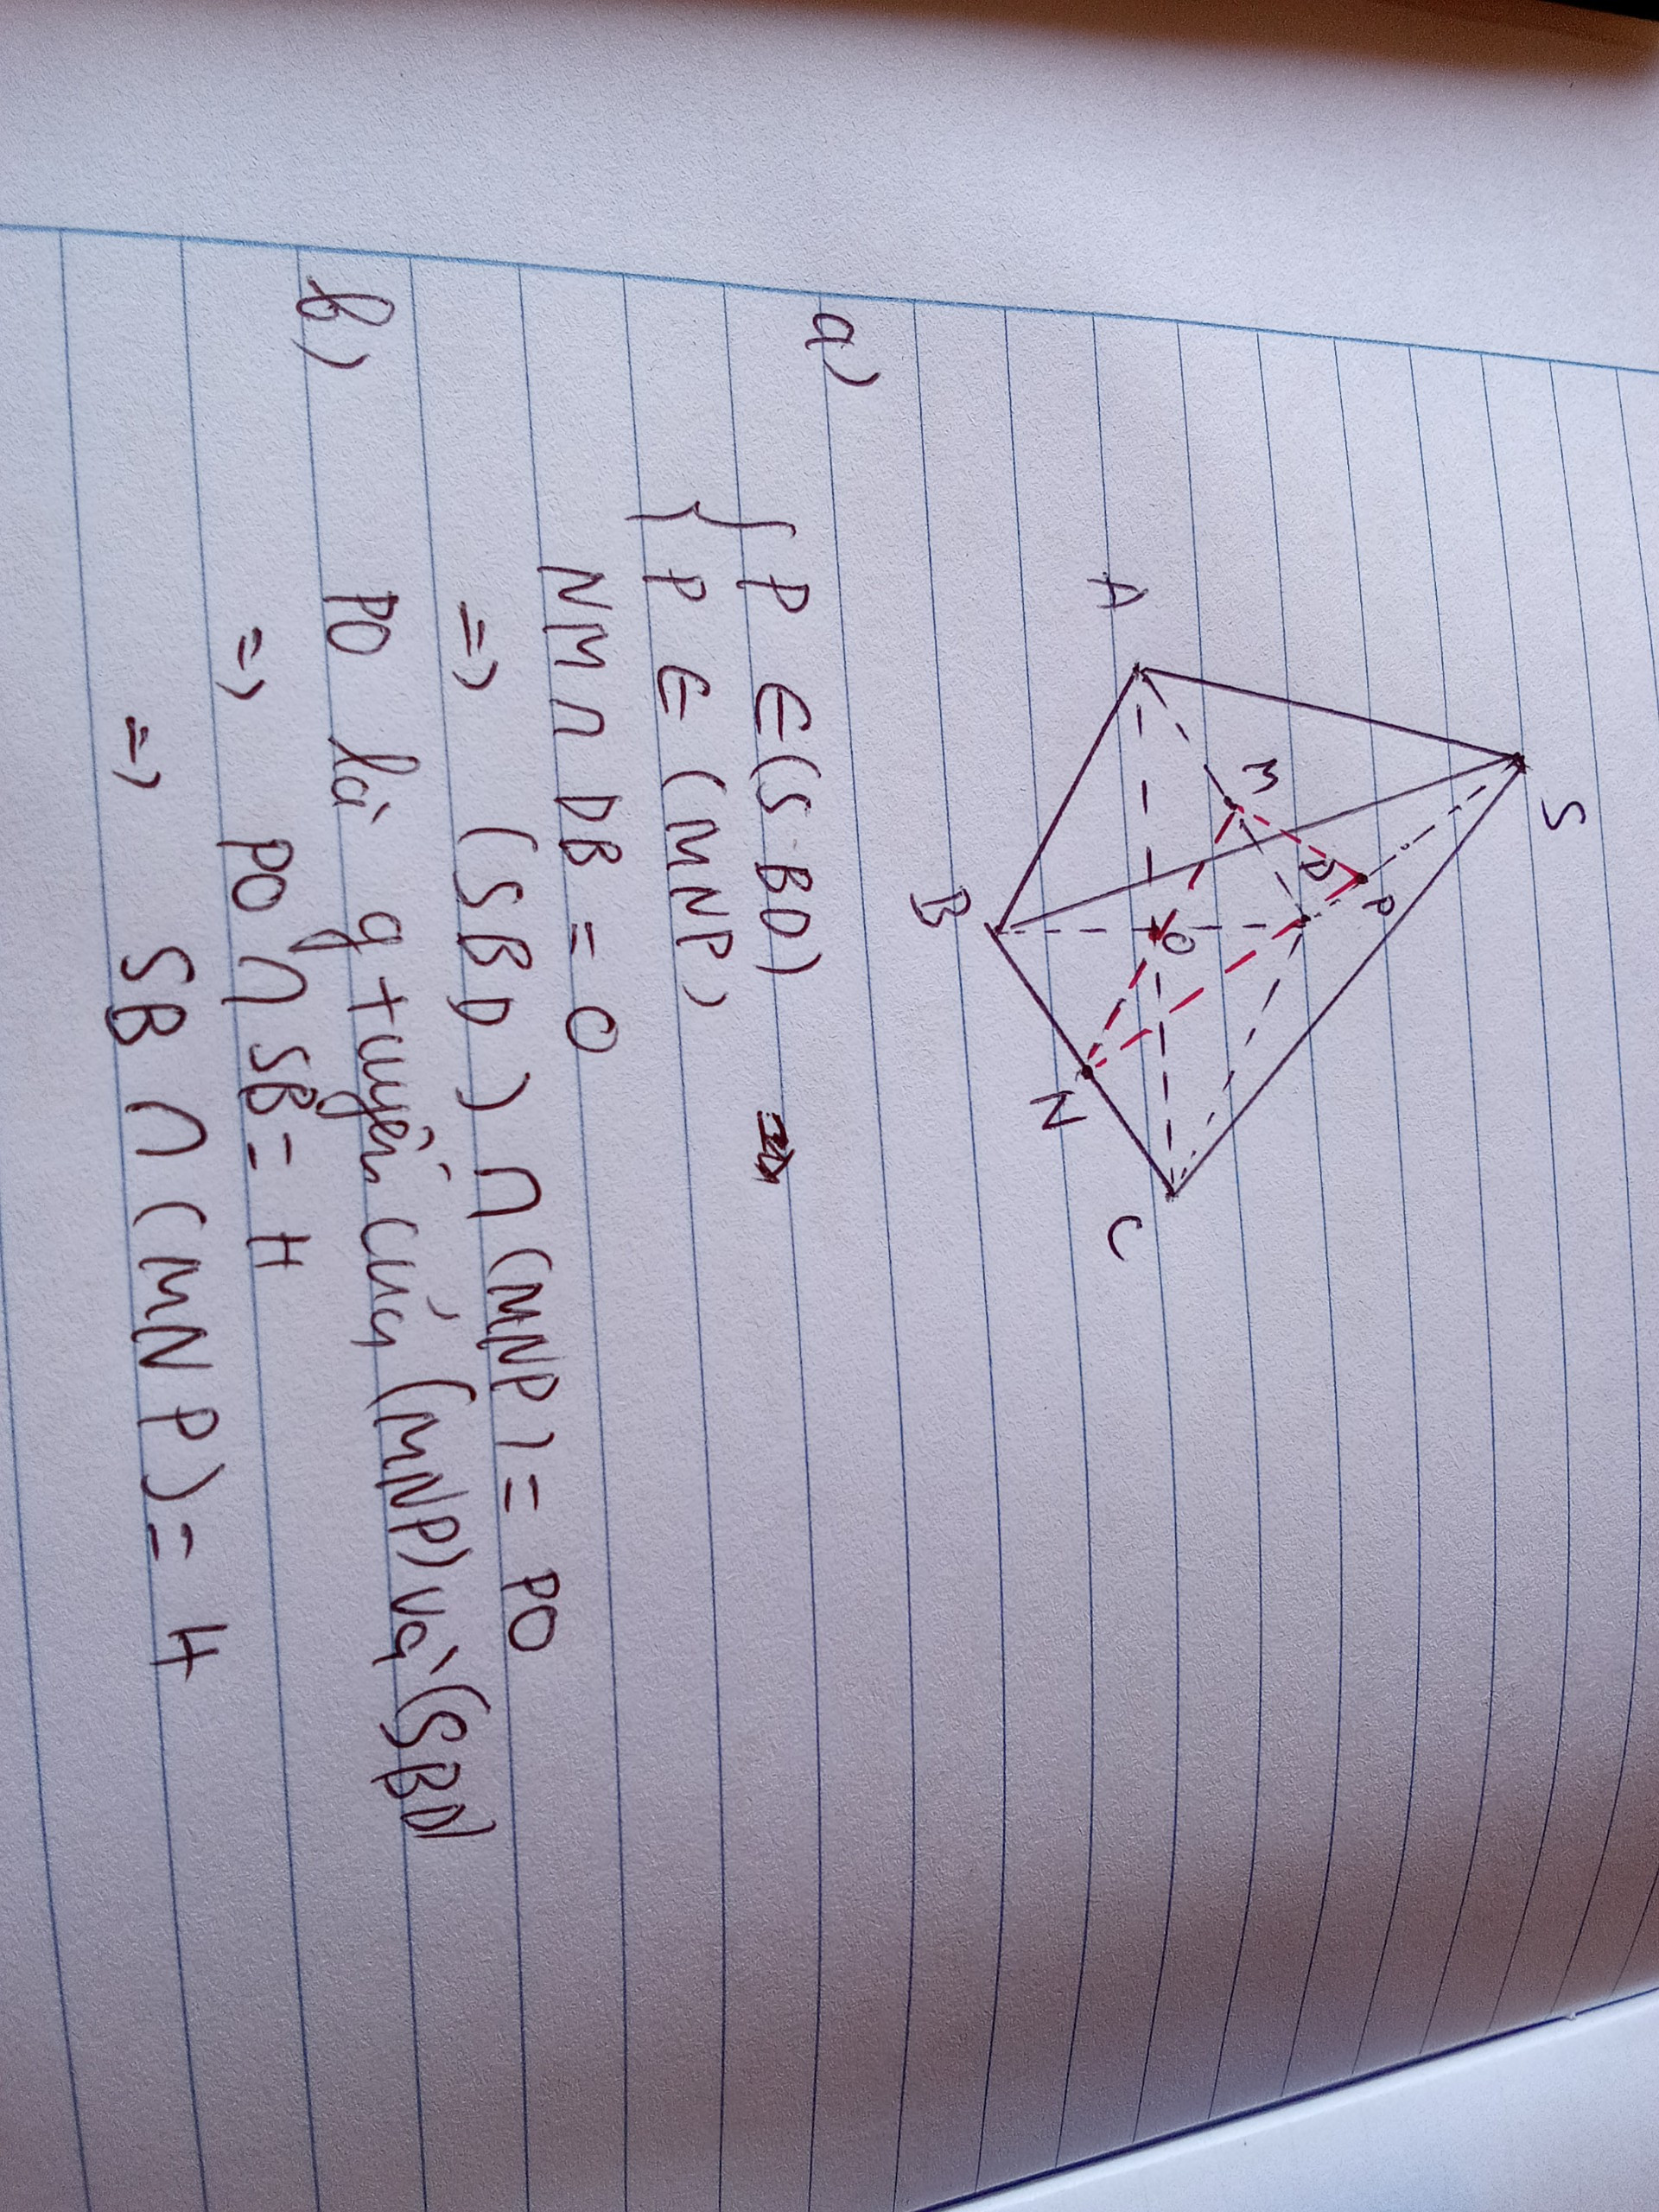 S
M
P
D
A
O
B
N
C
a) { P ∈ (S.BD)
P ∈ (MNP)
NM ∩ DB = O
=> (SBD) ∩ (MNP) = PO
b) PO là g tuyến của (MNP) và (SBD)
=> PO ∩ SB = H
=> SB ∩ (MNP) = H